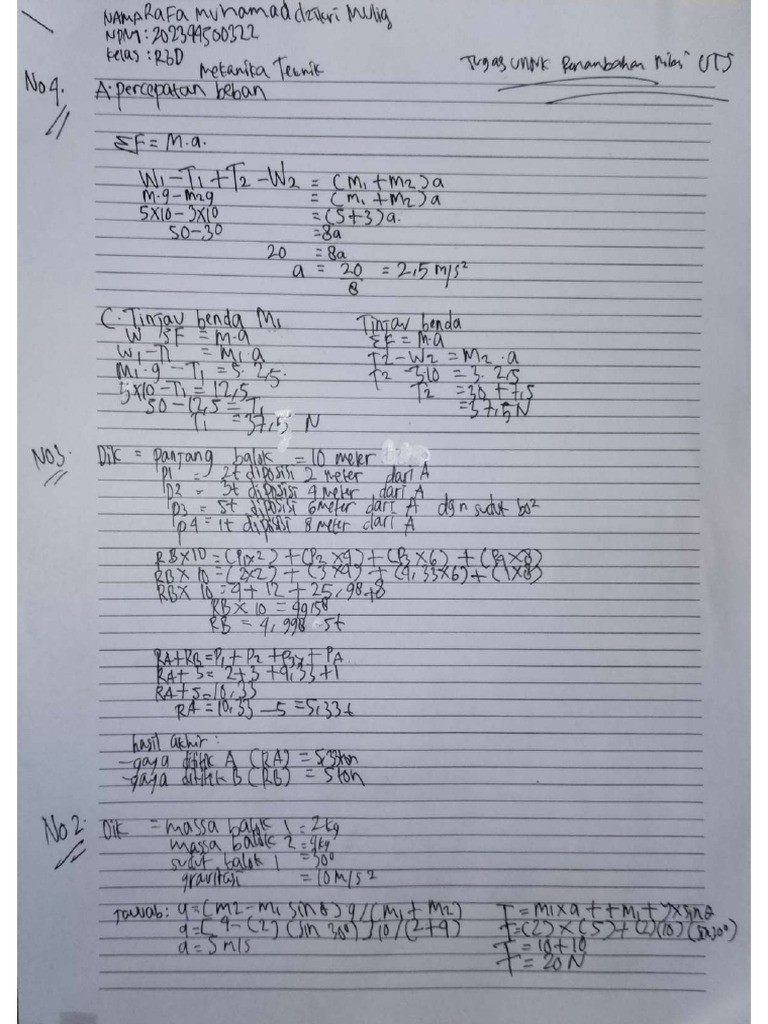 NAMA RAFA muhamad dzikri Mulia
NPM: 202344500322
Kelas: R3D
Mekanika Teknik
Tugas untuk Penambahan Nilai UTS
No 4.
A. percepatan beban
ΣF = M.a.
W1 - T1 + T2 - W2 = (m1 + m2) a
m.g - m2g = (m1 + m2) a
5x10 - 3x10 = (5+3) a.
50 - 30 = 8a
20 = 8a
a = 20/8 = 2,5 m/s²
C. Tinjau benda M1
W ΣF = m.a
W1 - T1 = M1.a
M1.g - T1 = 5. 2,5.
5x10 - T1 = 12,5
50 - 12,5 = T1
T1 = 37,5 N
Tinjau benda
ΣF = M.a
T2 - W2 = M2.a
T2 - 3.10 = 3. 2,5
T2 = 30 + 7,5
= 37,5 N
No 3.
Dik = panjang balok = 10 meter
P1 = 2t diposisi 2 meter dari A
P2 = 3t diposisi 4 meter dari A
P3 = 5t diposisi 6 meter dari A dgn sudut 60°
P4 = 1t diposisi 8 meter dari A
RB x 10 = (P1x2) + (P2 x 4) + (P3 x 6) + (P4 x 8)
RB x 10 = (2x2) + (3x4) + (4,33x6) + (1x8)
RB x 10 = 4 + 12 + 25,98 + 8
RB x 10 = 49,58
RB = 4,998 5t
RA + RB = P1 + P2 + P3y + P4
RA + 5 = 2 + 3 + 4,33 + 1
RA + 5 = 10,33
RA = 10,33 - 5 = 5,33 t
hasil akhir:
- gaya dititik A (RA) = 5,33 ton
- gaya dititik B (RB) = 5 ton
No 2.
Dik = massa balok 1 = 2kg
massa balok 2 = 4kg
sudut balok 1 = 30°
gravitasi = 10 m/s²
Jawab: a = (m2 - m1 sin θ) g / (m1 + m2)
a = [4 - (2) (sin 30°)] 10 / (2+4)
a = 5 m/s
T = m1 x a + + m1 + g x sin θ
T = (2) x (5) + (2)(10) (sin 30°)
T = 10 + 10
T = 20 N